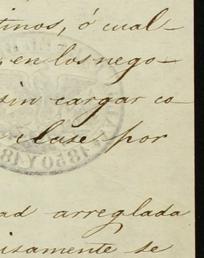 tinos, ó cual-
, en los nego-
sin cargar co-
clase por
ad arreglada
isamente se